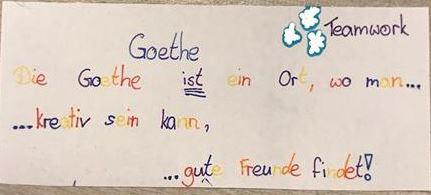 Teamwork
Goethe
Die Goethe ist ein Ort, wo man...
...kreativ sein kann,
...gute Freunde findet!